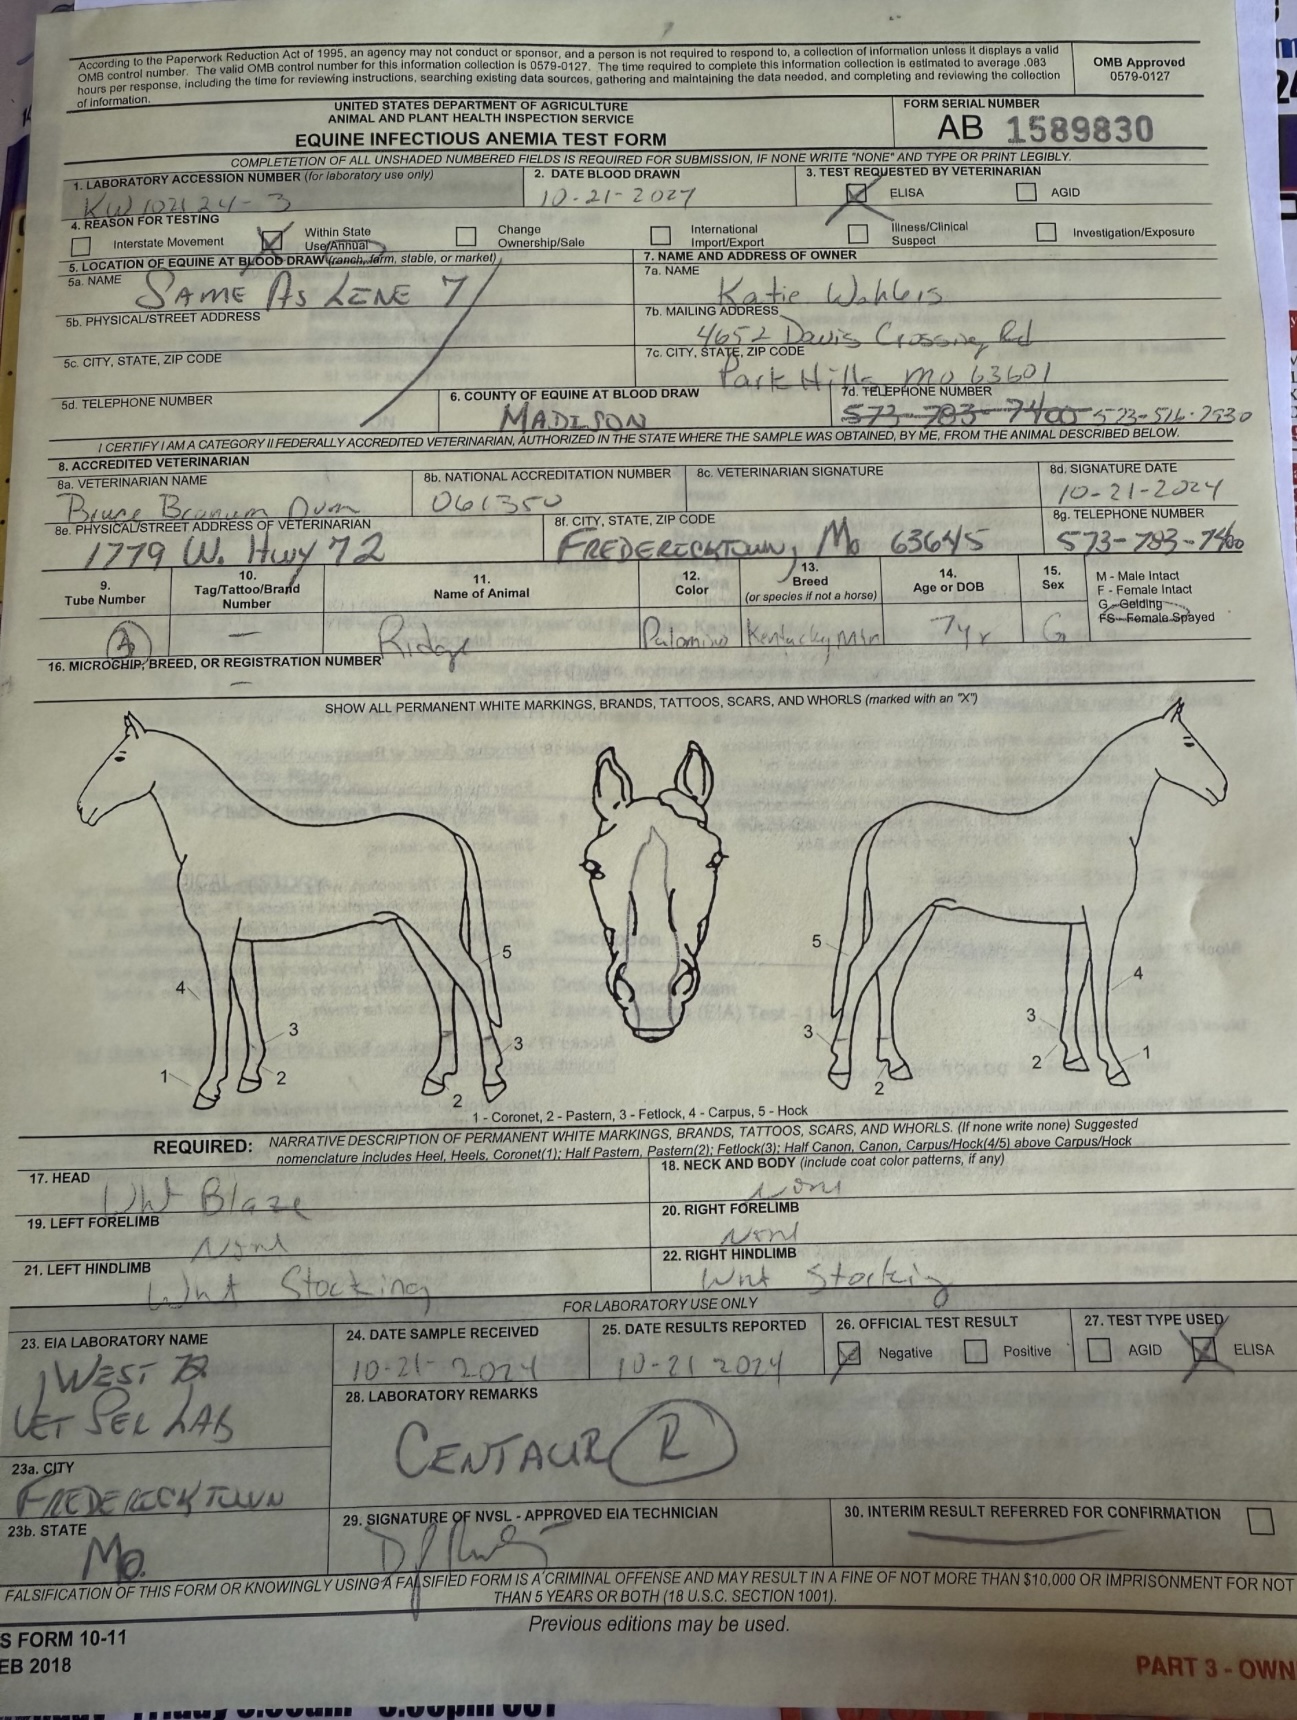 According to the Paperwork Reduction Act of 1995, an agency may not conduct or sponsor, and a person is not required to respond to, a collection of information unless it displays a valid
OMB control number. The valid OMB control number for this information collection is 0579-0127. The time required to complete this information collection is estimated to average .083
hours per response, including the time for reviewing instructions, searching existing data sources, gathering and maintaining the data needed, and completing and reviewing the collection
of information.
OMB Approved
0579-0127
UNITED STATES DEPARTMENT OF AGRICULTURE
ANIMAL AND PLANT HEALTH INSPECTION SERVICE
EQUINE INFECTIOUS ANEMIA TEST FORM
FORM SERIAL NUMBER
AB 1589830
COMPLETETION OF ALL UNSHADED NUMBERED FIELDS IS REQUIRED FOR SUBMISSION, IF NONE WRITE "NONE" AND TYPE OR PRINT LEGIBLY.
1. LABORATORY ACCESSION NUMBER (for laboratory use only)
KW102124-3
2. DATE BLOOD DRAWN
10-21-2024
3. TEST REQUESTED BY VETERINARIAN
ELISA AGID
4. REASON FOR TESTING
Interstate Movement
Within State
Use/Annual
Change
Ownership/Sale
International
Import/Export
Illness/Clinical
Suspect
Investigation/Exposure
5. LOCATION OF EQUINE AT BLOOD DRAW (ranch, farm, stable, or market)
5a. NAME
SAME AS LINE 7
5b. PHYSICAL/STREET ADDRESS
5c. CITY, STATE, ZIP CODE
5d. TELEPHONE NUMBER
6. COUNTY OF EQUINE AT BLOOD DRAW
MADISON
7. NAME AND ADDRESS OF OWNER
7a. NAME
Katie Wahlers
7b. MAILING ADDRESS
4652 Davis Crossing Rd
7c. CITY, STATE, ZIP CODE
Park Hills MO 63601
7d. TELEPHONE NUMBER
573-783-7400 573-516-7930
I CERTIFY I AM A CATEGORY II FEDERALLY ACCREDITED VETERINARIAN, AUTHORIZED IN THE STATE WHERE THE SAMPLE WAS OBTAINED, BY ME, FROM THE ANIMAL DESCRIBED BELOW.
8. ACCREDITED VETERINARIAN
8a. VETERINARIAN NAME
Bruce Branum DVM
8b. NATIONAL ACCREDITATION NUMBER
061350
8c. VETERINARIAN SIGNATURE
8d. SIGNATURE DATE
10-21-2024
8e. PHYSICAL/STREET ADDRESS OF VETERINARIAN
1779 W. Hwy 72
8f. CITY, STATE, ZIP CODE
FREDERICKTOWN, Mo 63645
8g. TELEPHONE NUMBER
573-783-7400
9.
Tube Number
10.
Tag/Tattoo/Brand
Number
11.
Name of Animal
12.
Color
13.
Breed
(or species if not a horse)
14.
Age or DOB
15.
Sex
M - Male Intact
F - Female Intact
G - Gelding
FS - Female Spayed
— Ridge Palomino Kentucky Mtn 7yr G
16. MICROCHIP, BREED, OR REGISTRATION NUMBER
—
SHOW ALL PERMANENT WHITE MARKINGS, BRANDS, TATTOOS, SCARS, AND WHORLS (marked with an "X")
5 5
4 4
3 3 3 3
1 2 2 2 2 1
1 - Coronet, 2 - Pastern, 3 - Fetlock, 4 - Carpus, 5 - Hock
REQUIRED: NARRATIVE DESCRIPTION OF PERMANENT WHITE MARKINGS, BRANDS, TATTOOS, SCARS, AND WHORLS. (If none write none) Suggested
nomenclature includes Heel, Heels, Coronet(1); Half Pastern, Pastern(2); Fetlock(3); Half Canon, Canon, Carpus/Hock(4/5) above Carpus/Hock
17. HEAD
Wht Blaze
18. NECK AND BODY (include coat color patterns, if any)
None
19. LEFT FORELIMB
None
20. RIGHT FORELIMB
None
21. LEFT HINDLIMB
Wht Stocking
22. RIGHT HINDLIMB
Wht Stocking
FOR LABORATORY USE ONLY
23. EIA LABORATORY NAME
WEST
VET SER LAB
23a. CITY
FREDERICKTOWN
23b. STATE
Mo.
24. DATE SAMPLE RECEIVED
10-21-2024
25. DATE RESULTS REPORTED
10-21 2024
26. OFFICIAL TEST RESULT
Negative Positive
27. TEST TYPE USED
AGID ELISA
28. LABORATORY REMARKS
CENTAUR R
29. SIGNATURE OF NVSL - APPROVED EIA TECHNICIAN
30. INTERIM RESULT REFERRED FOR CONFIRMATION
FALSIFICATION OF THIS FORM OR KNOWINGLY USING A FALSIFIED FORM IS A CRIMINAL OFFENSE AND MAY RESULT IN A FINE OF NOT MORE THAN $10,000 OR IMPRISONMENT FOR NOT
THAN 5 YEARS OR BOTH (18 U.S.C. SECTION 1001).
Previous editions may be used.
S FORM 10-11
EB 2018
PART 3 - OWN